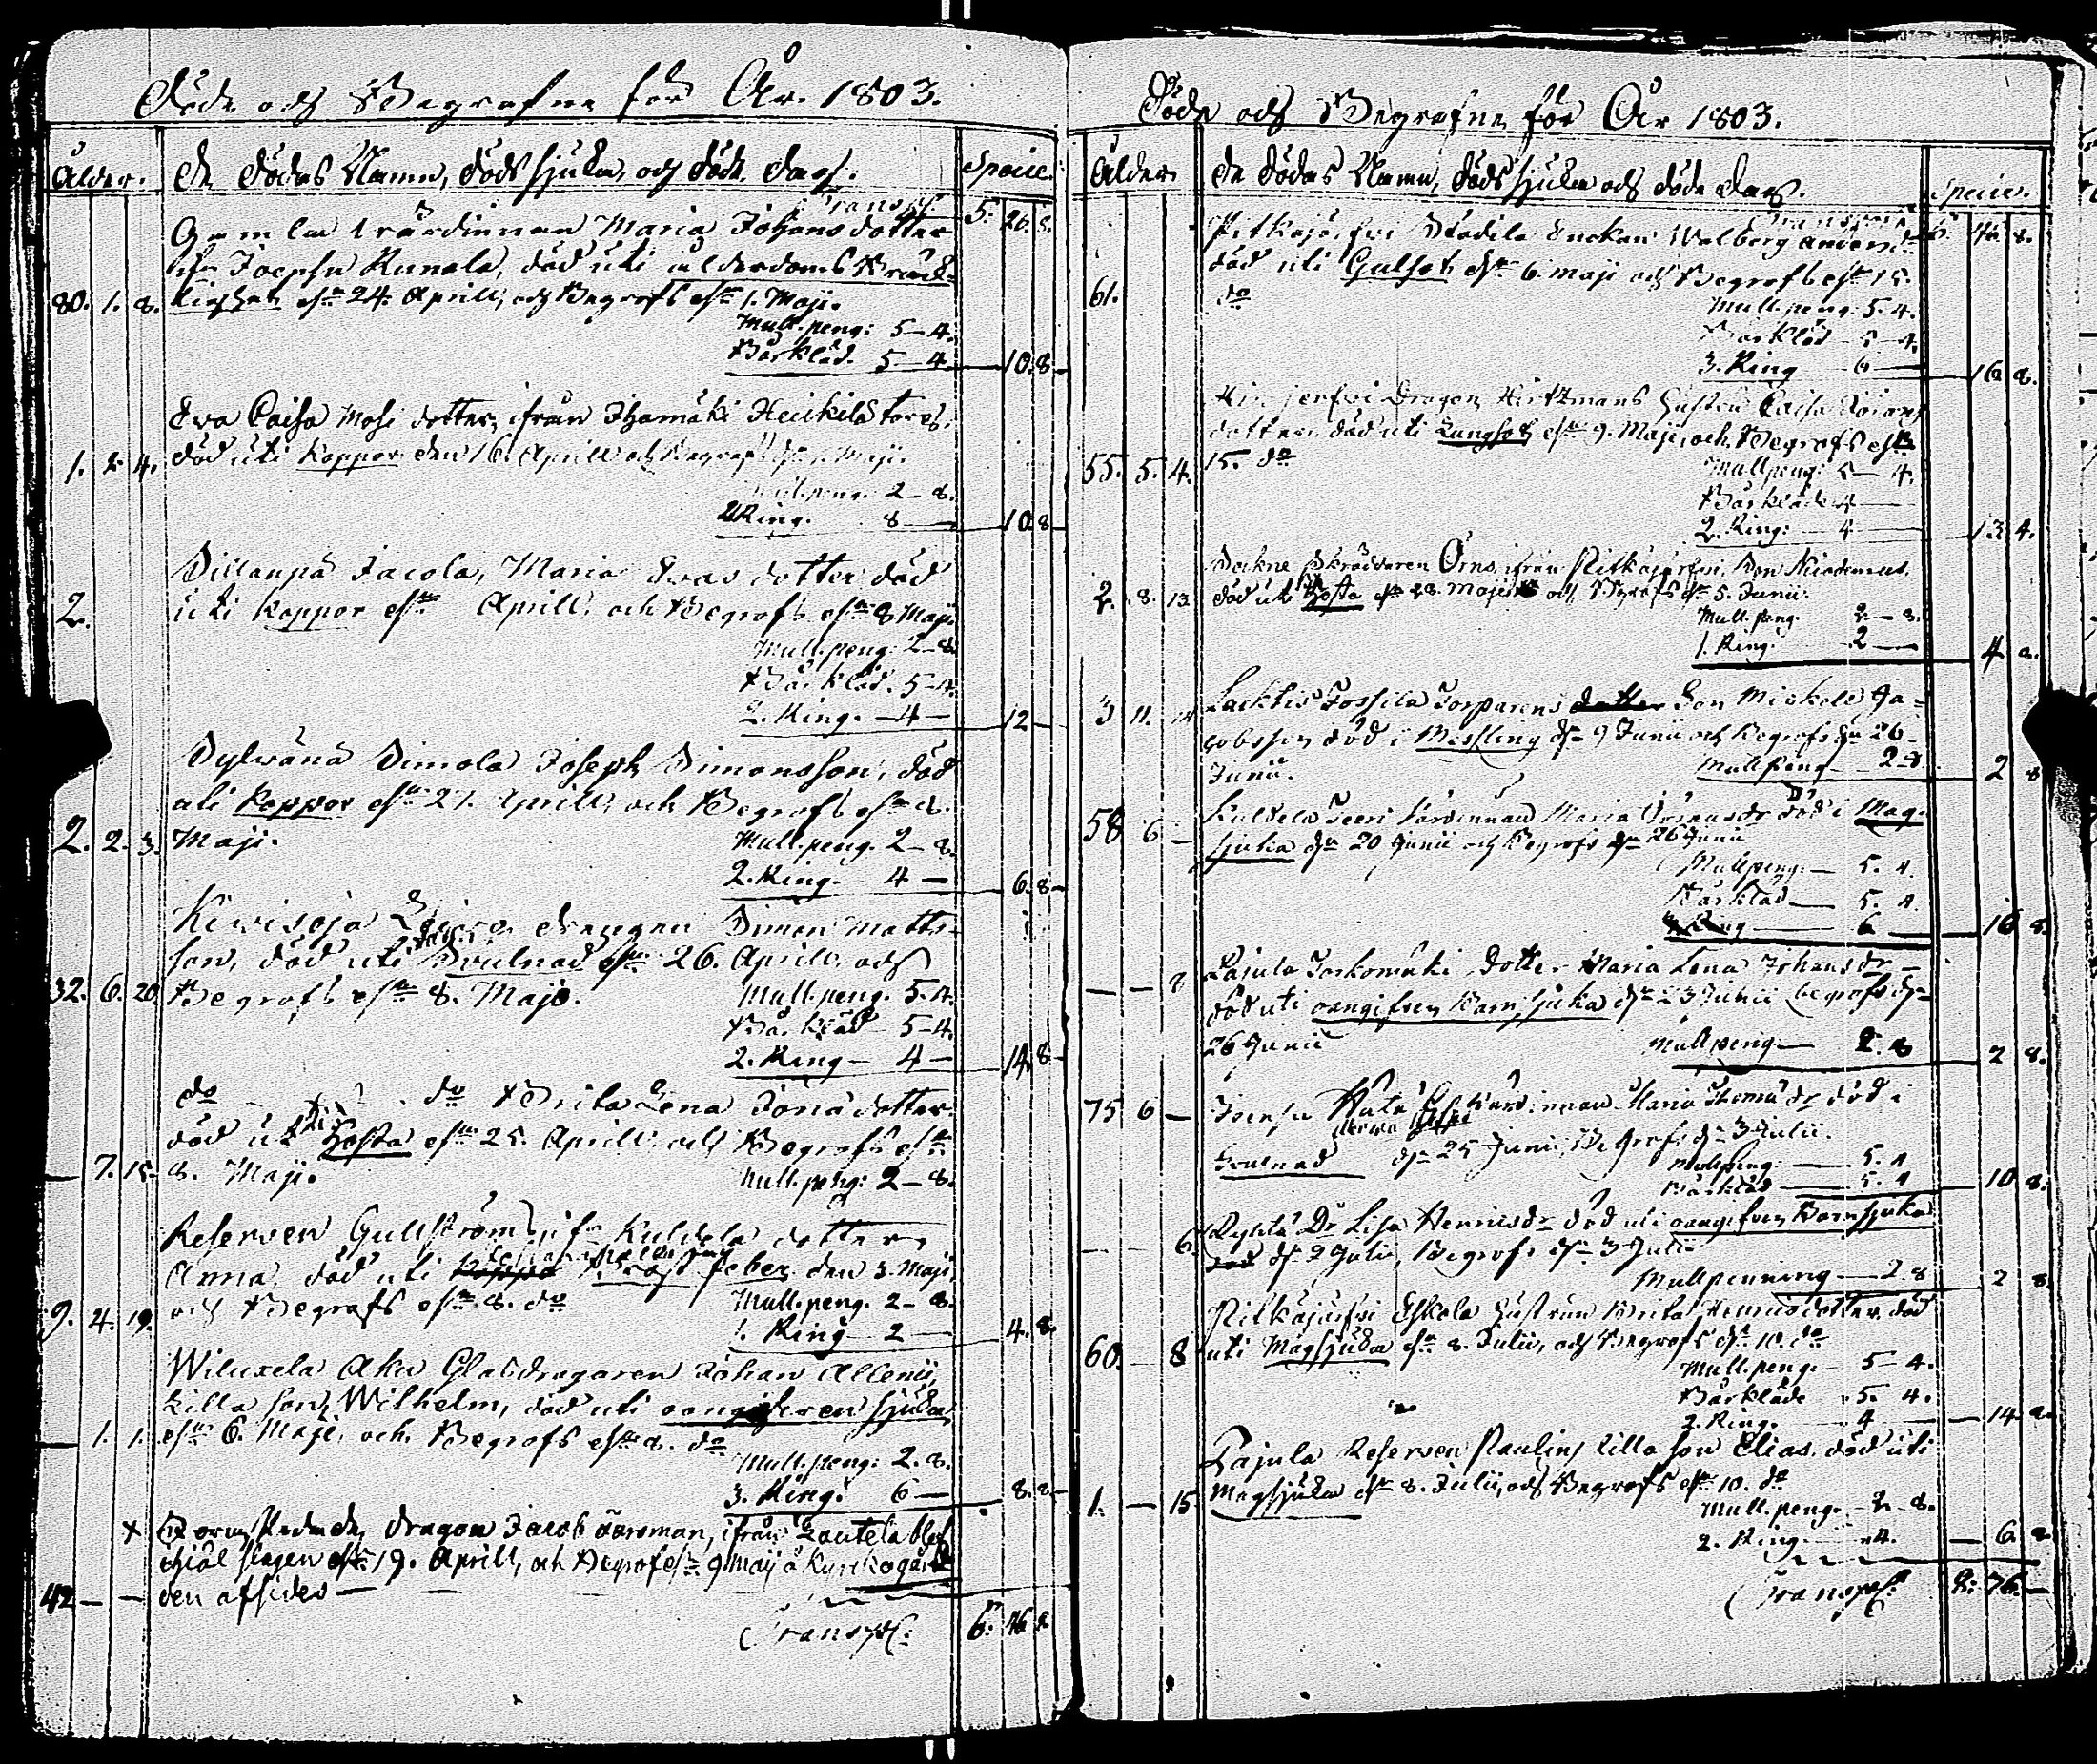 Döde och Begrafne för År 1803.
Ålder. De Dödas Namn, Dödssjukor, och Döde Dagar. Specie.
Transpt 5. 26. 8.
Gamla Värdinnan Maria Johansdotter
ifrån Joensu Kunola, död uti ålderdoms Bräck-
80. 1. 8. lighet den 24. Aprill, och Begrofs den 1. Maji.
Mull.peng: 5-4.
Bårkläd. 5-4 10. 8
Eva Caisa Mosi dotter, ifrån Ihamäki Heickilä torp,
1. 2. 4. död uti Koppor den 16. Aprill och Begrofs den 1. Maji.
Mull.peng. 2-8.
4 Ring. 8 10. 8
Sillanpä Jacola, Maria Evas dotter död
2. uti Koppor den Aprill, och Begrofs den 8 Maji
Mull.peng. 2-8.
Bårkläd. 5-4.
2. Ring. 4 12
Sylvänä Simola Joseph Simonsson, död
uti Koppor den 27. Aprill, och Begrofs den 8.
2. 2. 3. Maji.
Mull.peng. 2-8.
2. Ring. 4 6. 8
Kiviseja drengen Simon Matts-
son, död uti Svulnad den 26. Aprill, och
32. 6. 20. Begrofs den 8. Maji.
Mull.peng. 5.4.
Bårkläd 5-4.
2. Ring 4 14. 8
do do Brita Lena Jöns dotter
död uti Hosta den 25. Aprill, och Begrofs den
7. 15. 8. Maji.
Mull.peng: 2-8.
Reserven Gullström, ifrån Kuldela dotter
Anna, död uti feber den 3. Maji,
9. 4. 19. och Begrofs den 8. do
Mull.peng. 2-8.
1. Ring 2 4. 8
Wiluxela Aku Glasdragaren Johan Allenii
Lilla son, Wilhelm, död uti oangifven sjukdom
1. 1. den 6. Maji, och Begrofs den 8. do
Mull.peng: 2.8.
3. Ring. 6 8. 8
x Dragon Jacob Åorsman, ifrån Lautela blef
ihiäl slagen den 19. Aprill, och Begrofs den 9 Maij å Kyrckogår-
42 den afsides
Transpt: 6. 46. 8
Döde och Begrafne för År 1803.
Ålder. De Dödas Namn, Dödssjukor och Döde Dagar. Specie.
Transport 6. 46. 8.
Pitkäjärfvi Stadila Enckan Walborg Anders dr
död uti Gulsot den 6 Maji och Begrofs den 15.
61. do
Mull.peng. 5.4.
Bårkläd 5-4.
3. Ring 6 16. 8.
Hirsjerfvi Dragon Hirtzmans Hustru Caisa Görans
dotter, död uti Lungsot den 9. Maji, och Begrofs den
55. 5. 4. 15. do
Mull.peng: 5-4.
Bårkläde 4
2. Ring: 4 13. 4.
Sockne Skräddaren Örns, ifrån Pitkäjärfvi, Son Nicodemus,
2. 8. 13 död uti Hosta den 28. Maji och Begrofs den 5. Junii.
Mull.peng. 2-8.
1. Ring. 2 4. 8.
3 11. 14 Lacktis Jossila Torparens dotter Son Mickel Ja-
cobsson död i Messling den 9 Junii och Begrofs den 26
Junii.
Mullpeng 2-8 2 8
58 6 Kuldela Peeri Värdinnan Maria Göransdr död i Mag-
sjuka den 20 Junii och Begrofs den 26 Junii
Mullpeng: 5. 4.
Bårkläd 5. 4.
Ring 6 16 8.
8 Lajula Torkomäki dotter Maria Lena Johansdr
död uti oangifven Barnsjuka den 23 Junii begrofs den
26 Junii
Mullpeng 2. 8 2 8.
75 6 Joensu Värdinnan Maria Thomædr död i
Svulnad den 25 Junii, Begrofs den 3 Julii.
Mullpeng: 5. 4
Bårkläd 5. 4 10 8.
6. Rychtä Dr Lisa Henricsdr död uti oangifven Barnsjuka
den 2 Julii, Begrofs den 3 Julii
Mullpenning 2 8 2 8.
Pitkäjärfvi Eskola Hustrun Brita Henricsdotter död
60. 8 uti Magsjukdom den 8. Julii, och Begrofs den 10. do
Mull.peng. 5-4.
Bårkläde 5. 4.
2. Ring. 4 14. 8.
Lajula Reserven Paulins lilla son Elias, död uti
1. 15 Magsjukdom den 8. Julii, och Begrofs den 10. do
Mull.peng. 2-8.
2. Ring. 4. 6. 8
Transpt 8. 76.